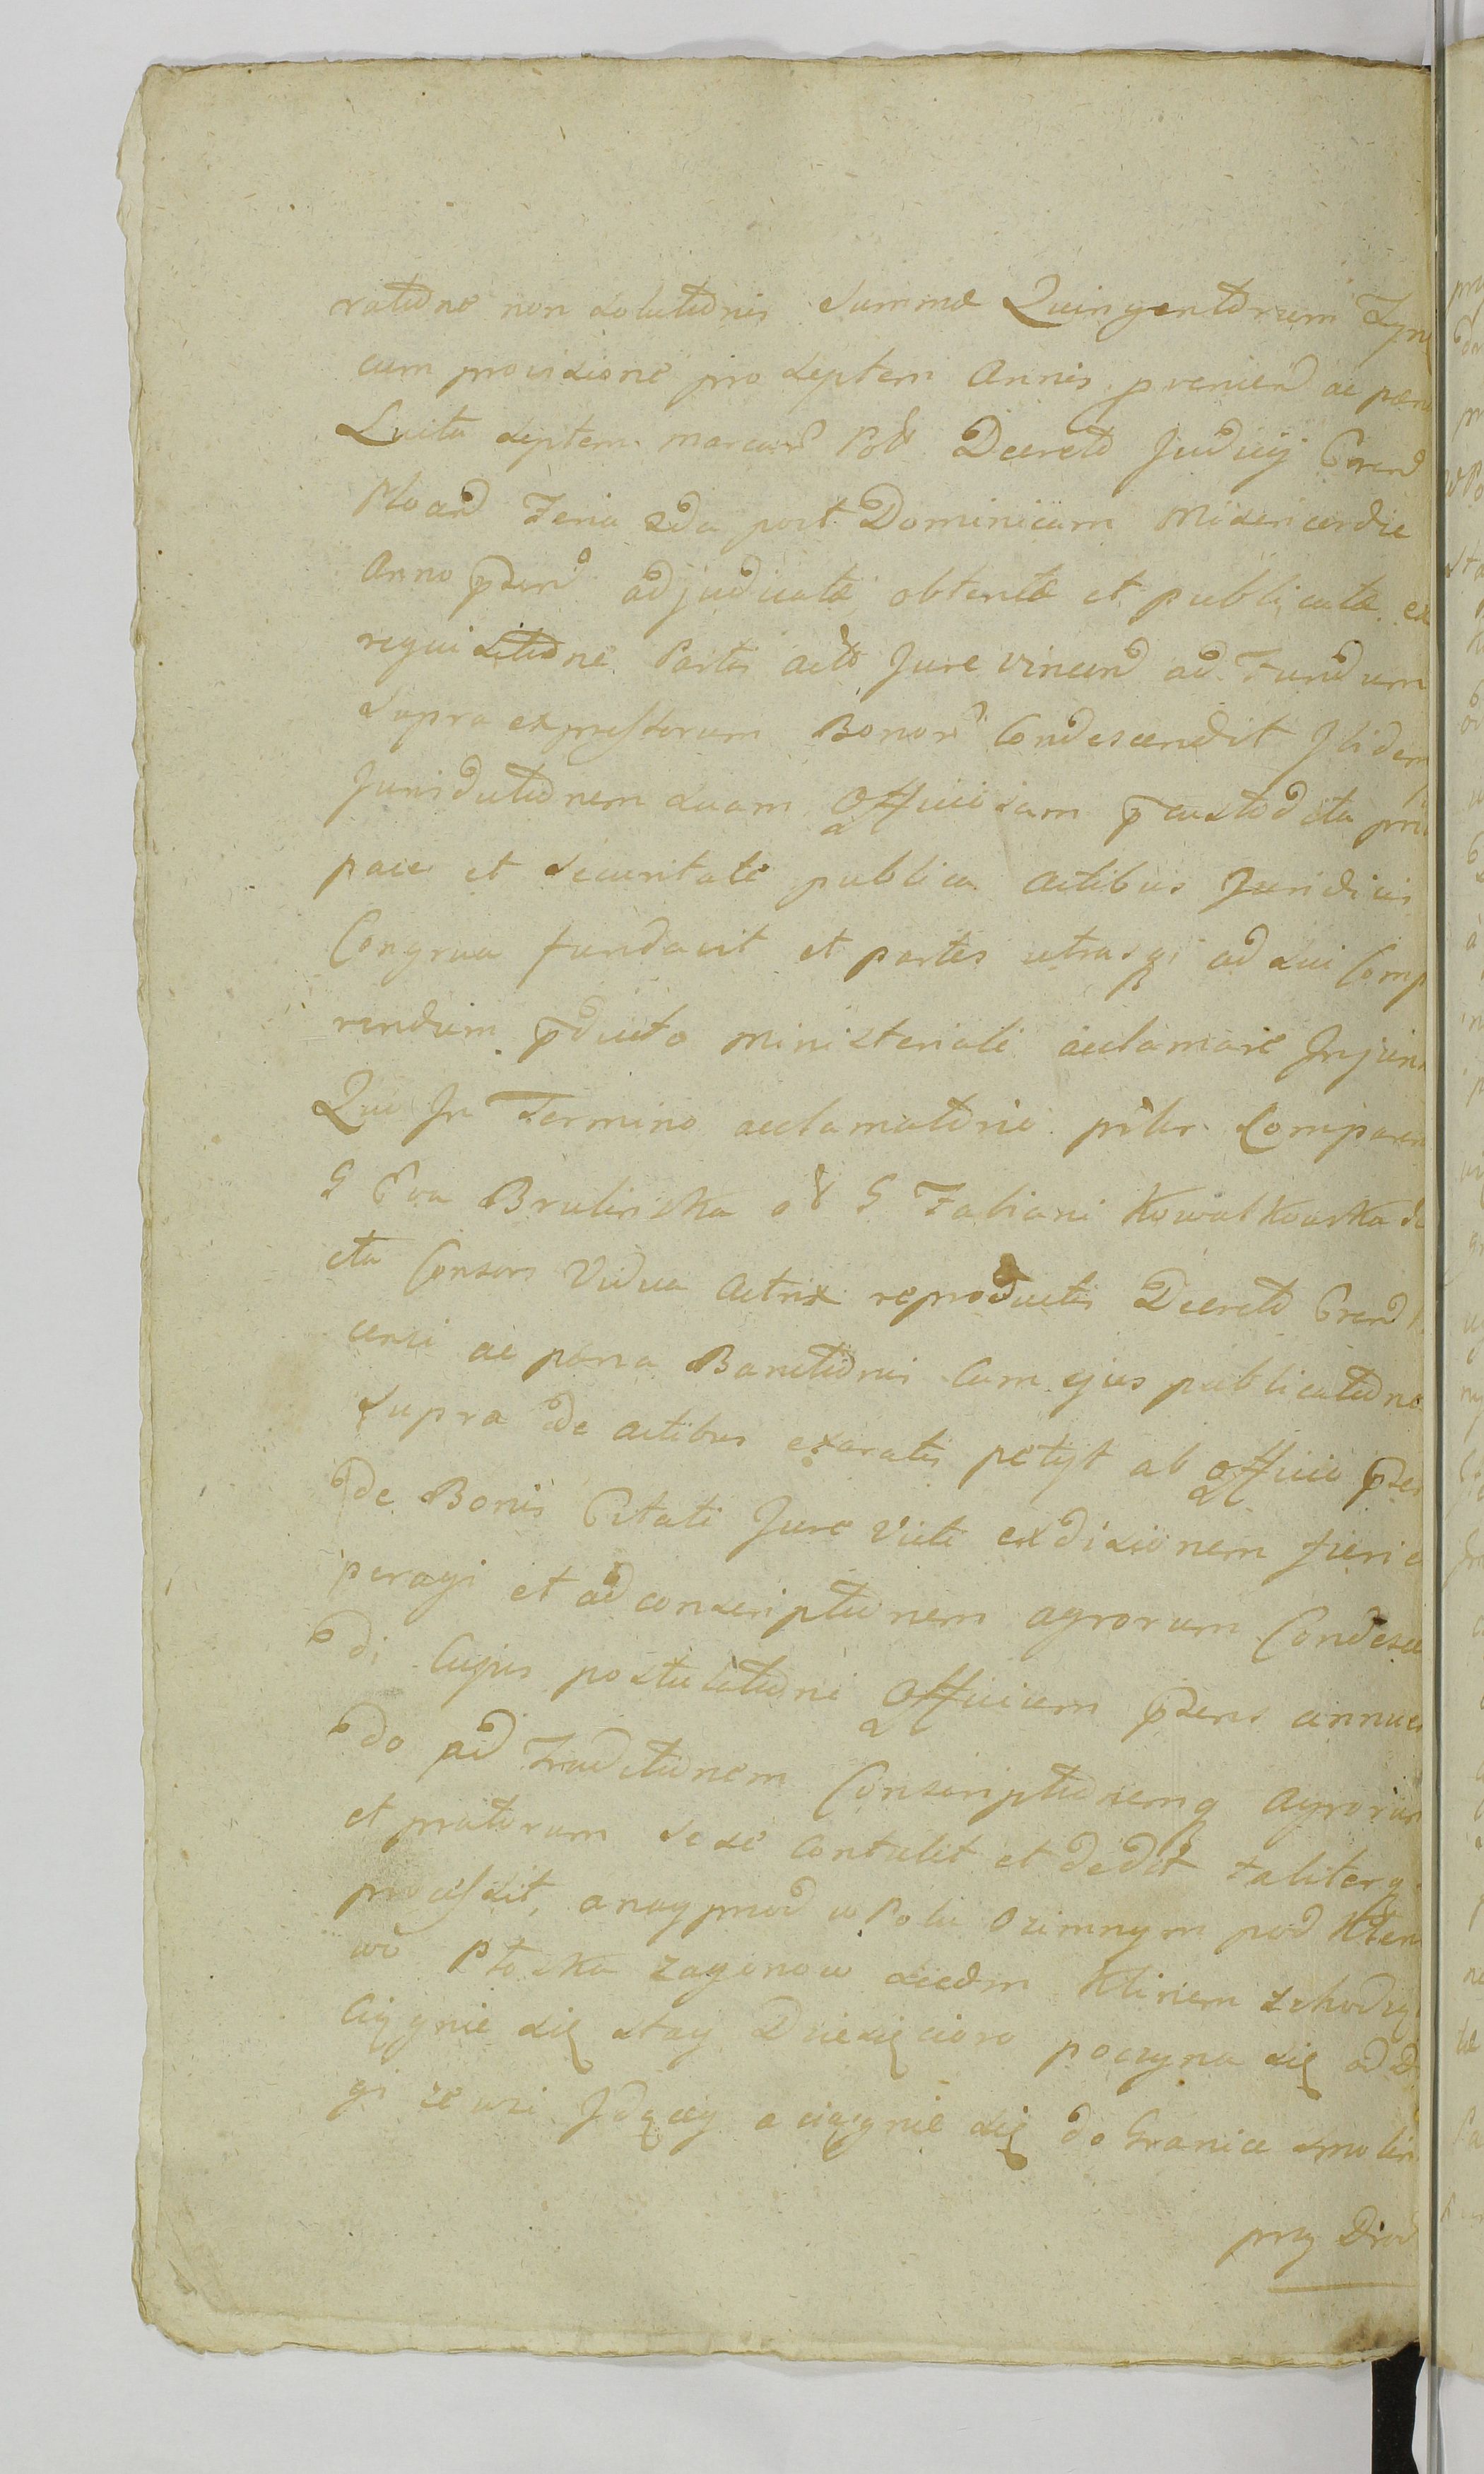 ratione non solutionis summæ Quingentorum Zyn
cum provisione pro septem Annis pvenien ac pæna
Luita septem marcar Pol Decreto Judicij Gnend
Ploand Feria 2da post Dominicam Misericordiæ
Anno psen adjudicatæ obtentæ et publicatæ ex
requisitione Partis act Jure vincend ad Fundum
supra expressorum Bonor Condescendit Ibidem
Jurisdictionem suam Officiosam p custodita pri
pace et securitate publica actibus Juridicis
Congrua fundavit et partes utrasq ad sui Comp
rendum pdicto ministeriali acclamare Injun
Qui In Termino acclamatorio pnltr Comparen
G Eva Brulinska ol G Fabiani Kowalkowska
cta Consors Vidua Actrix reproductis Decreto Grend
censi ac pæna Banitionis cum ejus publicatione
supra de actibus exaratis petijt ab officio psen
de Bonis Citati Jure victi exdivisionem fieri e
peragi et ad conscriptionem agrorum Condesce
di Cujus postulationi Officium psens annuen
do ad Traditionem Conscriptionemq agrorum
et pratorum sese contulit et dedit taliterq
processit, a nayprzod w Polu Ozimnym pod
wo Płoska zagonow siedm Klinem schodzą
Ciągnie się stay Dziesięcioro poczyna się od D
gi ze wsi Idącey a ciągnie się do Granice smolin
przy Drod